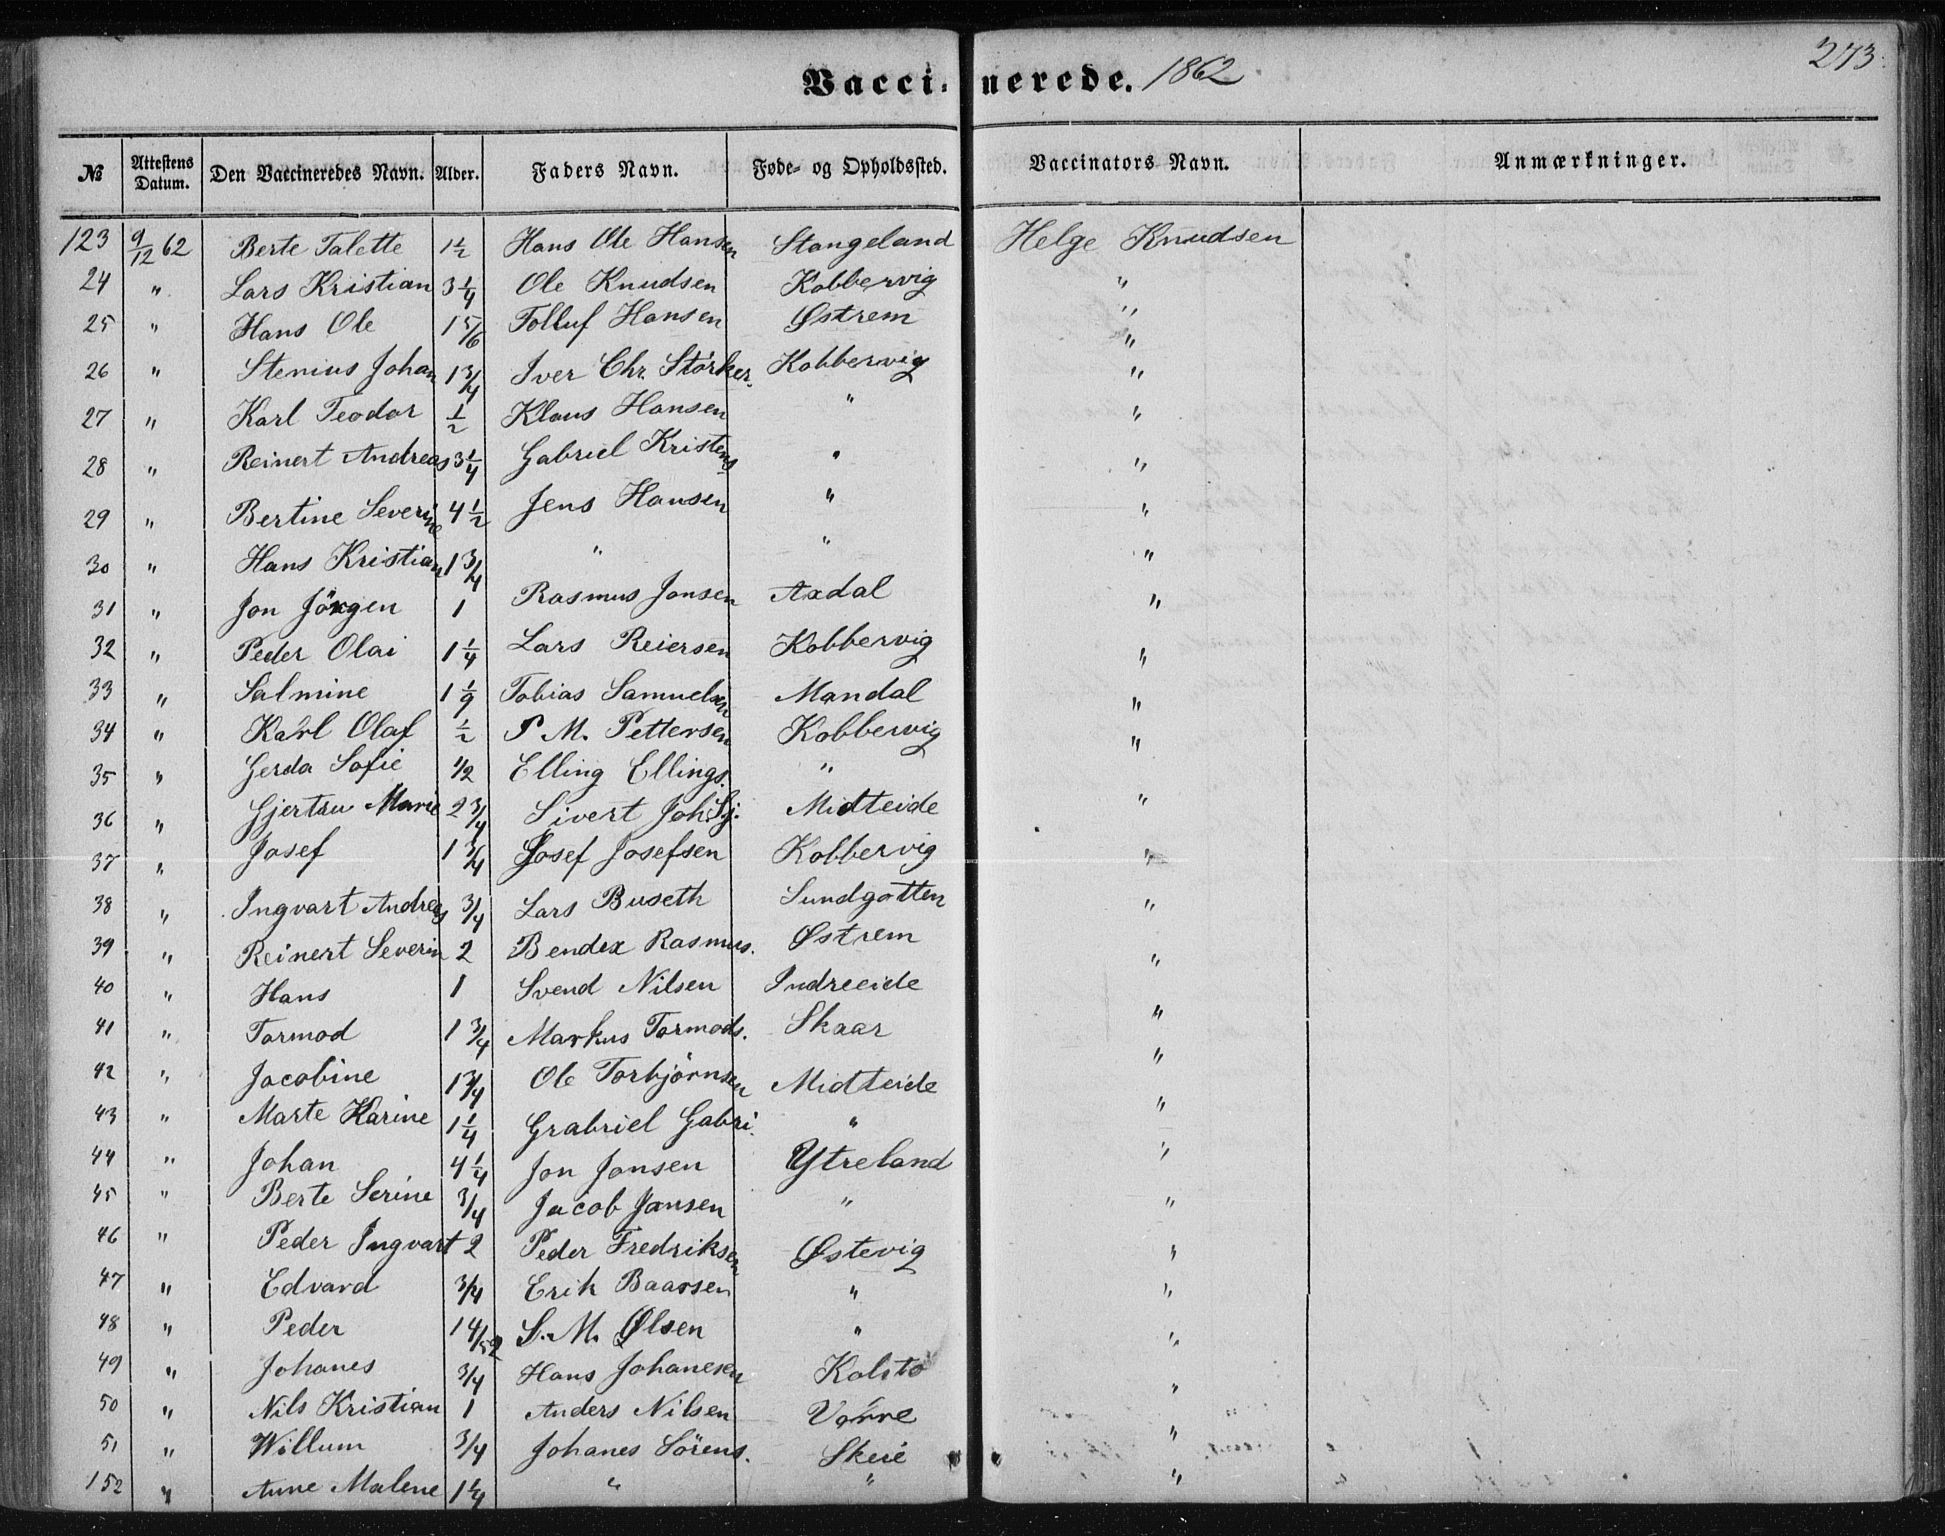 273.
Vaccinerede. 1862
№ Attestens Datum. Den Vaccineredes Navn. Alder. Faders Navn. Føde- og Opholdssted. Vaccinators Navn. Anmærkninger.
123 9/12 62 Berte Talette 1 1/2 Hans Ole Hansen Stangeland Helge Knudsen
24 " Lars Kristian 3 1/4 Ole Knudsen Kobbervig "
25 " Hans Ole 1 5/6 Tolluf Hansen Østrem "
26 " Stenius Johan 1 3/4 Iver Chr. Störker. Kobbervig "
27 " Karl Teodor 1/2 Klaus Hansen " "
28 " Reinert Andreas 3 1/4 Gabriel Kristens " "
29 " Bertine Severine 4 1/2 Jens Hansen " "
30 " Hans Kristian 1 3/4 " " "
31 " Jon Jörgen 1 Rasmus Jonsen Axdal "
32 " Peder Olai 1 1/4 Lars Reiersen Kobbervig "
33 " Salmine 1 1/9 Tobias Samuelsen Mandal "
34 " Karl Olaf 1/2 P M. Pettersen Kobbervig "
35 " Gerda Sofie 1/2 Elling Ellings. " "
36 " Gjertru Marie 2 3/4 Sivert Joh. Sj. Midteide "
37 " Josef 1 3/4 Josef Josefsen Kobbervig "
38 " Ingvart Andreas 3/4 Lars Buseth Sundgotten "
39 " Reinert Severin 2 Bendix Rasmus. Østrem "
40 " Hans 1 Svend Nilsen Indreeide "
41 " Tormod 1 3/4 Markus Tormods. Skaar "
42 " Jacobine 1 3/4 Ole Torbjörnsen Midteide "
43 " Marte Karine 1 1/4 Grabriel Gabri. " "
44 " Johan 4 1/4 Jon Jonsen Ytreland "
45 " Berte Serine 3/4 Jacob Jansen " "
46 " Peder Ingvart 2 Peder Fredriksen Østevig "
47 " Edvard 3/4 Erik Baarsen " "
48 " Peder 14/52 S. M. Ølsen " "
49 " Johanes 3/4 Hans Johanesen Kolstö "
50 " Nils Kristian 1 Anders Nilsen Vorre "
51 " Willum 3/4 Johanes Sörens. Skeie "
152 " Anne Malene 1 1/4 " " "